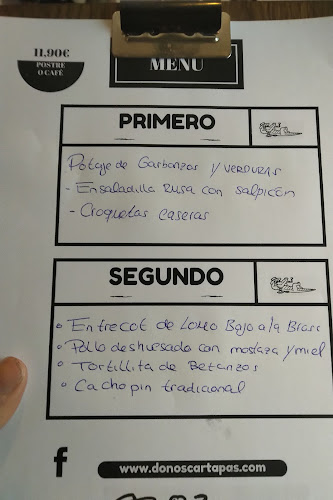 11,90€
POSTRE
O CAFÉ
MENÚ
PRIMERO
Potaje de Garbanzos y VERDURAS
- Ensaladilla Rusa con salpicón
- Croquetas caseras
SEGUNDO
• Entrecot de Lomo Bajo a la Brasa
• Pollo deshuesado con mostaza y miel
• Tortillita de Betanzos
• Cachopin tradicional
f
www.donoscartapas.com